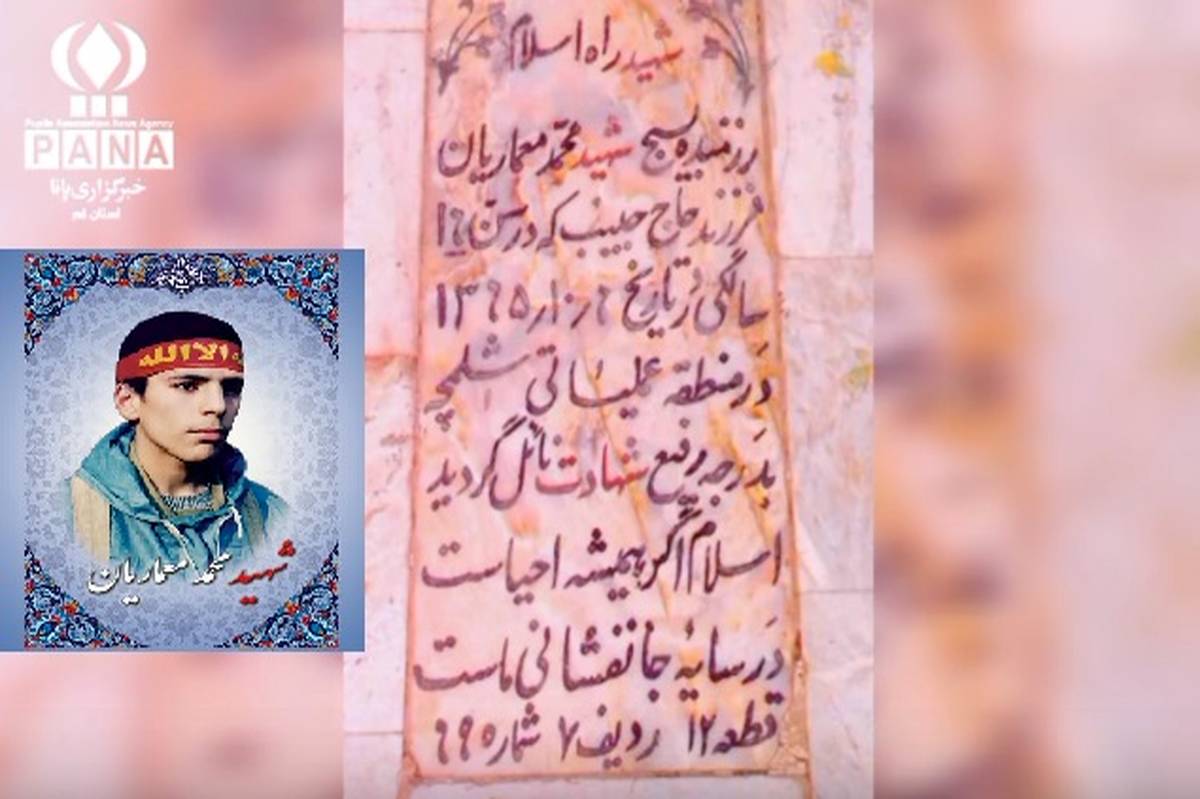 Pupils Association News Agency
PANA
خبرگزاری پانا
استان قم
الا الله
شهید محمد معماریان
شهید راه اسلام
رزمنده بسیج شهید محمد معماریان
فرزند حاج حبیب که در سن ۱۶
سالگی در تاریخ ۶ر۱۰ر۱۳۶۵
در منطقه عملیاتی شلمچه
بدرجه رفیع شهادت نائل گردید
اسلام اگر همیشه احیاست
در سایهٔ جانفشانی ماست
قطعه ۱۲ ردیف ۷ شماره ۶۹